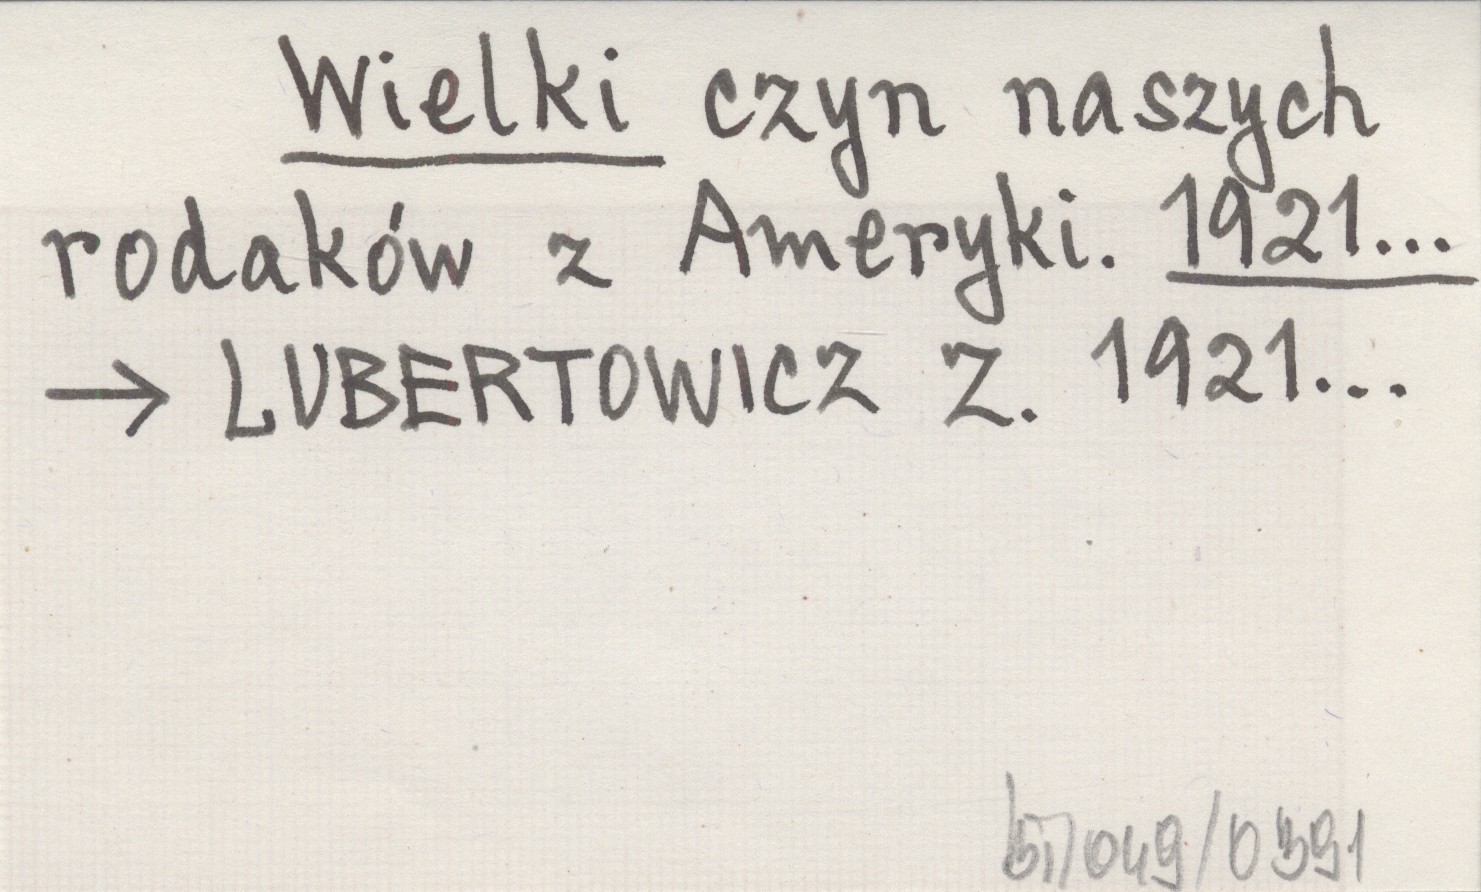 Wielki czyn naszych
rodaków z Ameryki. 1921...
→ LUBERTOWICZ Z. 1921...
049/0391